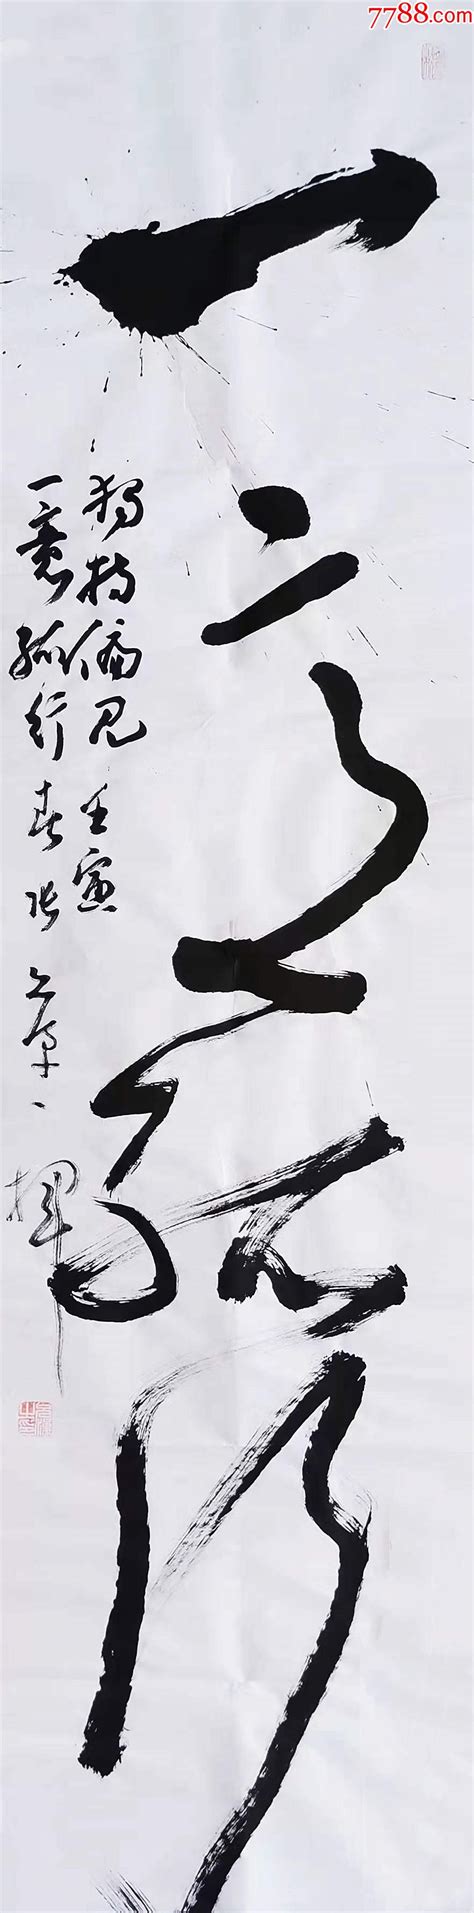 7788.com
一意孤行
独持偏见 壬寅
一意孤行 春